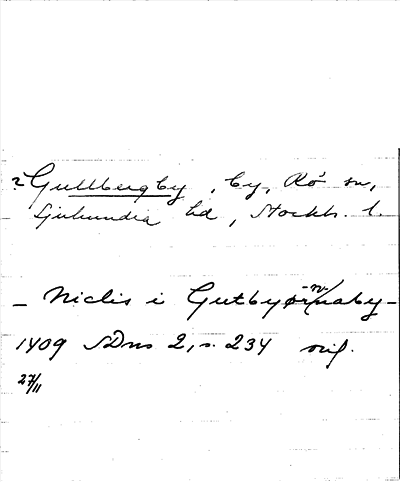 ? Gullbergby, by, Rö sn,
Sjuhundra hd, Stockh. l.
– Niclis i Gutby
1409 SDns 2, s. 234
27/11